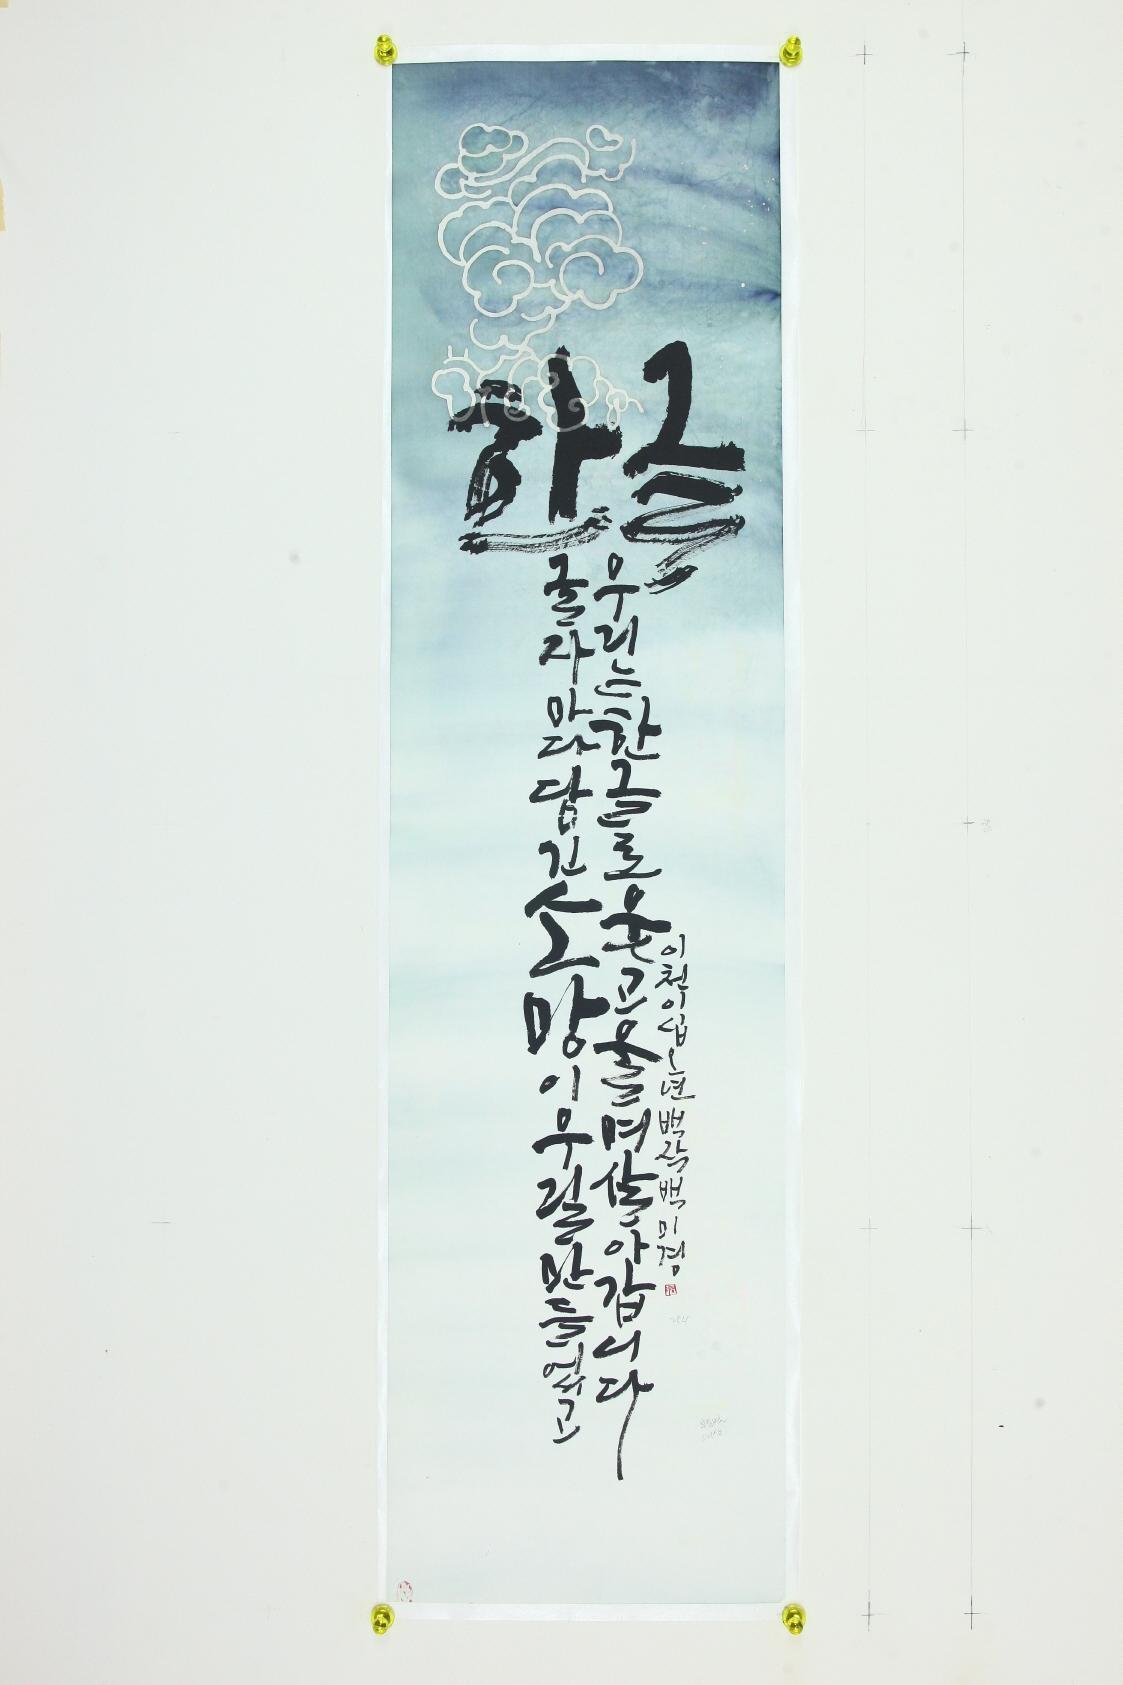 한글
글자마다 담긴 소망이 우릴 만들었고
우리는 한글로 웃고 울며 살아갑니다
이천이십오년 백작 백미경